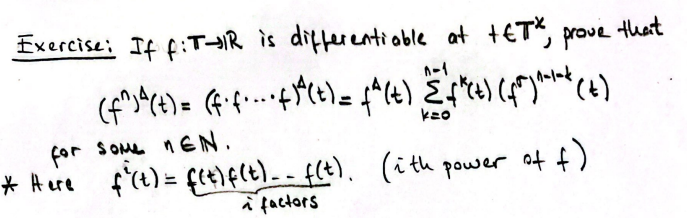 Exercise: If f: T→ℝ is differentiable at t∈Tˣ, prove that
(fⁿ)^Δ(t) = (f·f·...·f)^Δ(t) = f^Δ(t) Σ_{k=0}^{n-1} f^k(t) (f^σ)^{n-1-k}(t)
for some n∈ℕ.
* Here f^i(t) = f(t)f(t)...f(t). (i th power of f)
i factors